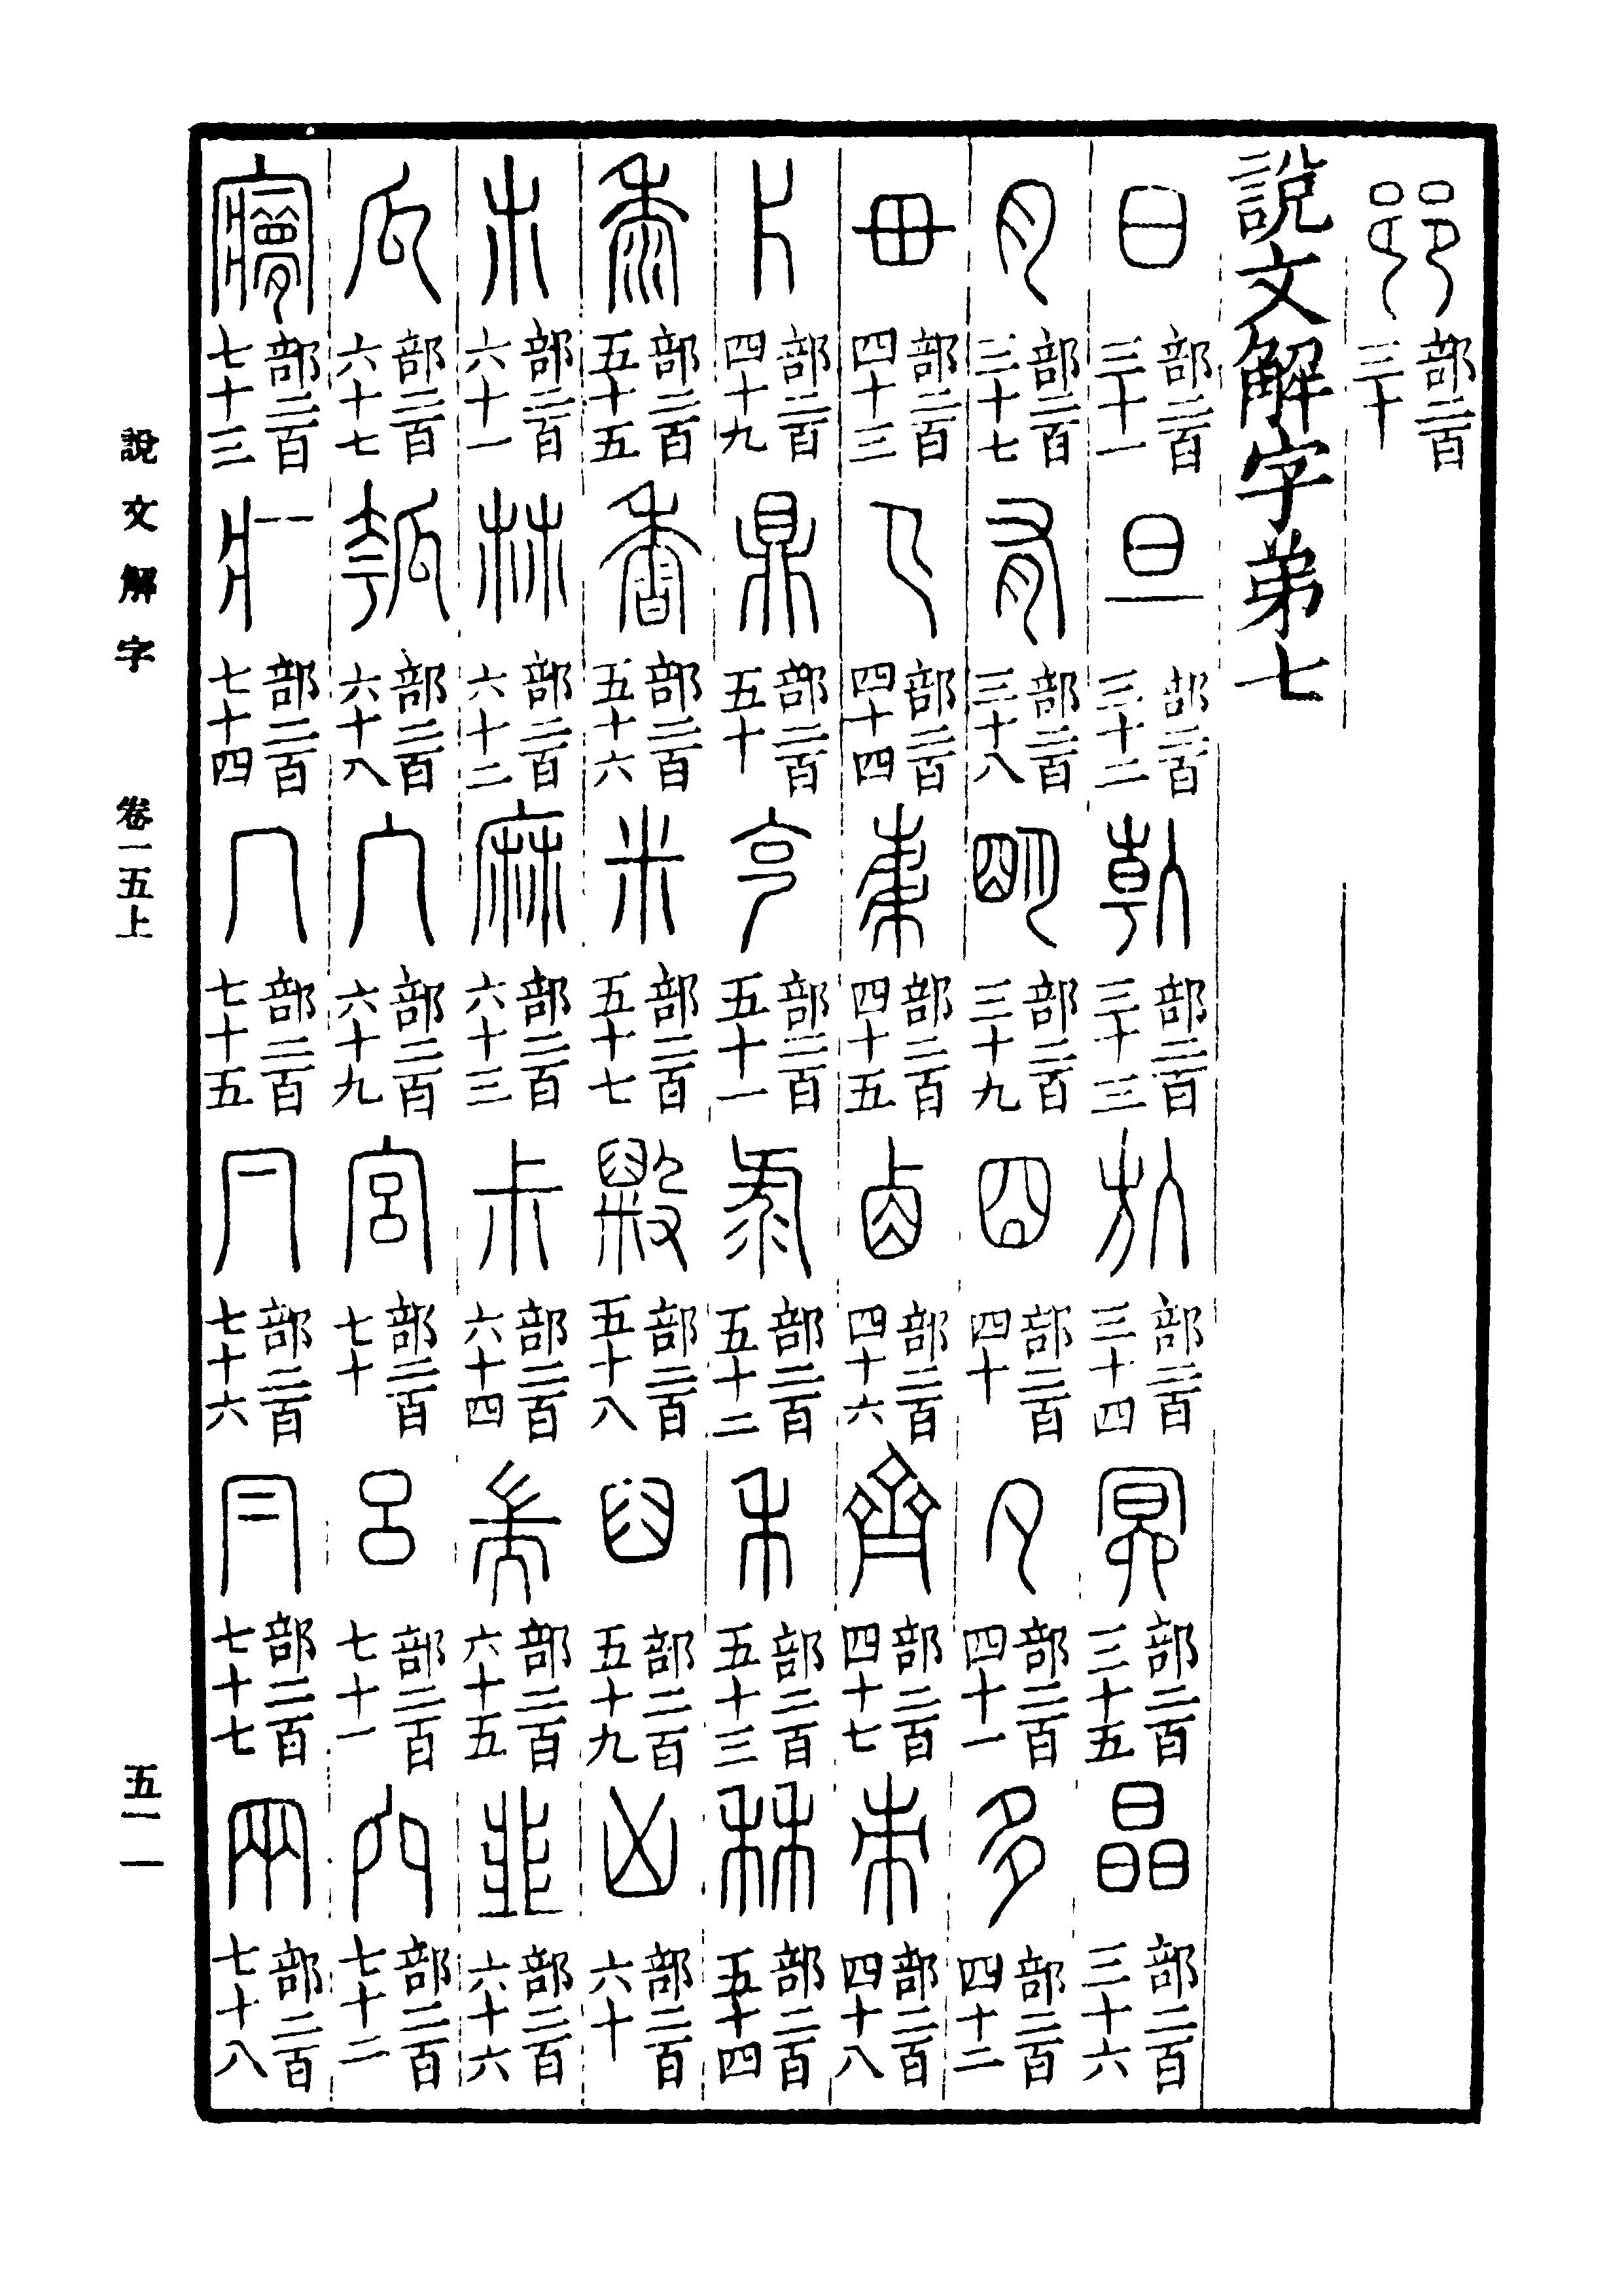 𨛜部二百三十
說文解字弟七
日部二百三十一 旦部二百三十二 倝部二百三十三 㫃部二百三十四 冥部二百三十五 晶部二百三十六
月部二百三十七 有部二百三十八 朙部二百三十九 囧部二百四十 夕部二百四十一 多部二百四十二
毌部二百四十三 𢎘部二百四十四 𣐺部二百四十五 𠧪部二百四十六 齊部二百四十七 朿部二百四十八
片部二百四十九 鼎部二百五十 克部二百五十一 彔部二百五十二 禾部二百五十三 秝部二百五十四
黍部二百五十五 香部二百五十六 米部二百五十七 毇部二百五十八 臼部二百五十九 凶部二百六十
朩部二百六十一 𣏟部二百六十二 麻部二百六十三 尗部二百六十四 耑部二百六十五 韭部二百六十六
瓜部二百六十七 瓠部二百六十八 宀部二百六十九 宮部二百七十 呂部二百七十一 穴部二百七十二
㝱部二百七十三 疒部二百七十四 冖部二百七十五 𠔼部二百七十六 冃部二百七十七 㒳部二百七十八
說文解字 卷一五上 五一一